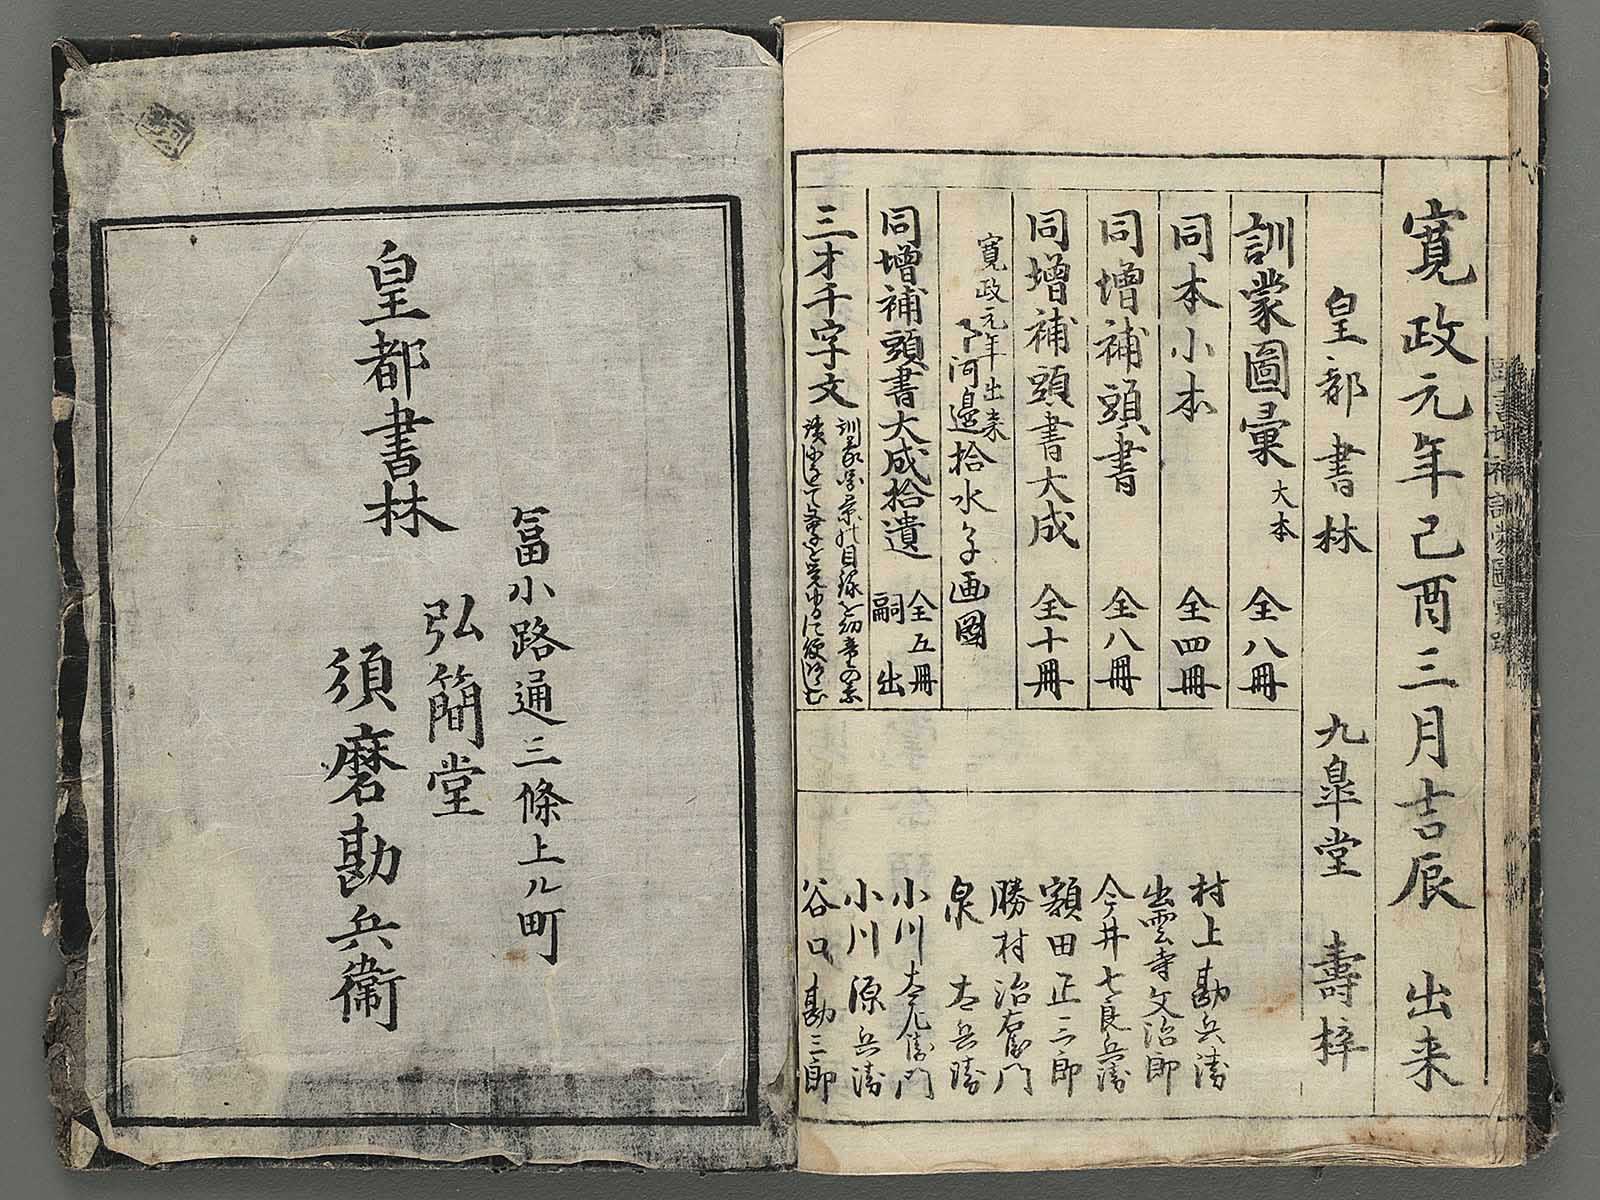 寛政元年己酉三月吉辰　出来
皇都書林　九皐堂　壽梓
訓蒙圖彙　大本　全八冊
同本小本　全四冊
同増補頭書　全八冊
同増補頭書大成　全十冊
寛政元年出来
下河邊拾水子画圖
同増補頭書大成拾遺　全五冊
嗣出
三才千字文
村上勘兵衛
出雲寺文治郎
今井七良兵衛
額田正三郎
勝村治右衛門
泉太兵衛
小川太左衛門
小川源兵衛
谷口勘三郎
冨小路通三條上ル町
皇都書林
弘簡堂
須磨勘兵衛